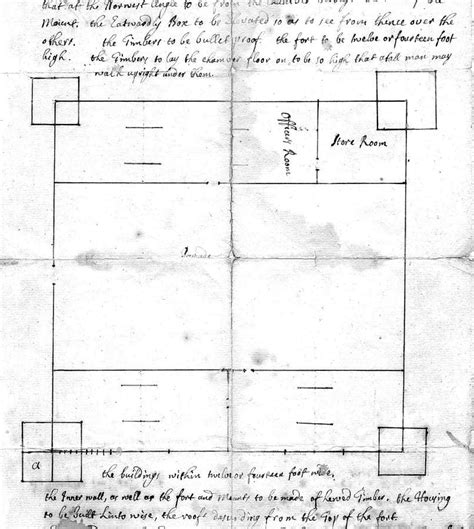 that at the Norwest Angle to be
Mount. the Eastwardly Box to be so as to see from thence over the
others. the Timbers to be bullet proof the fort to be twelve or fourteen foot
high. the Timbers to lay the chamber floor on, to be so high that a tall man may
walk upright under them.
Officers Room
Store Room
a
the buildings within twelve or fourteen foot wide.
the Inner wall, as well as the fort and Mounts to be made of hewed Timber. the Housing
to be Built Linto wise, the roofs from the Top of the fort.